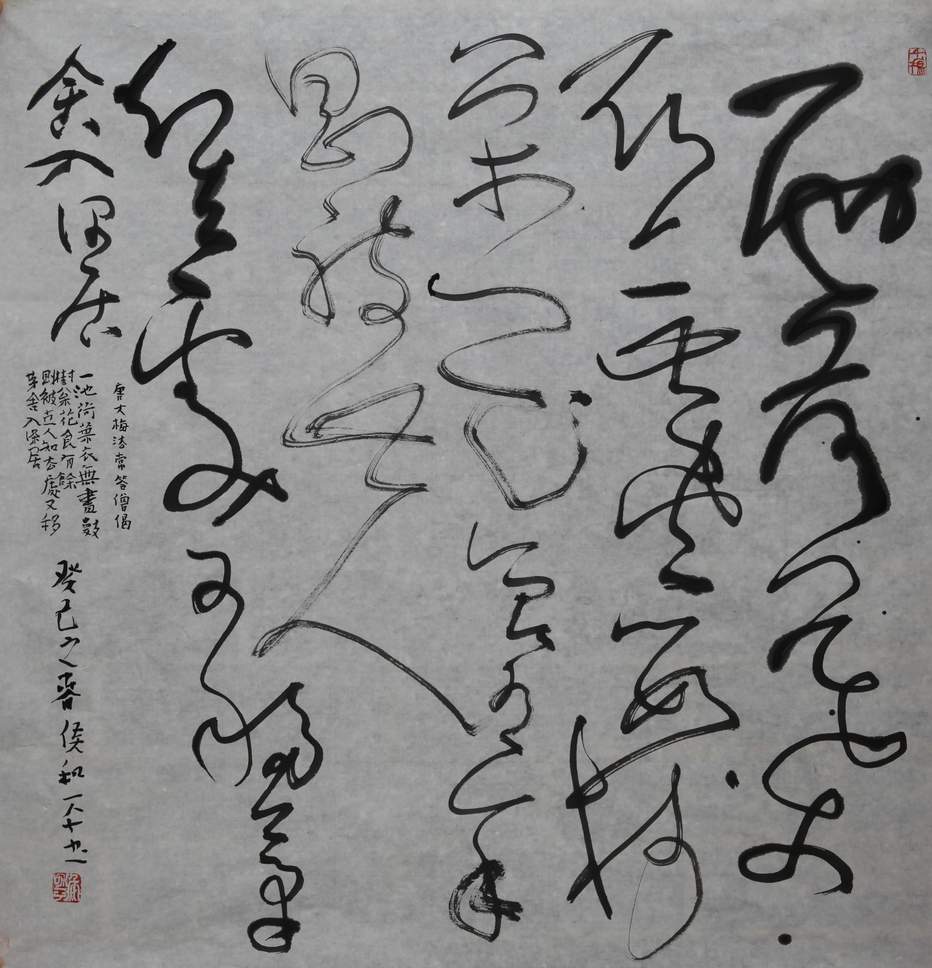 一池荷葉
衣無盡數樹
松花食有餘
剛被世人
知去處又移茅
舍入深居
唐大梅法常答僧偈
一池荷葉衣無盡數
樹松花食有餘
剛被世人知去處又移
茅舍入深居
癸巳之春侯和